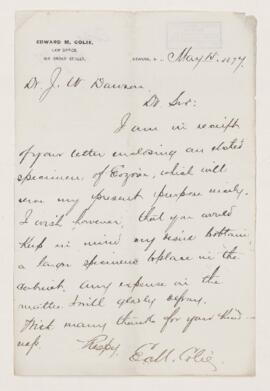 EDWARD M. COLIE,
LAW OFFICE,
BROAD STREET,
NEWARK, May 15, 1897
Dr. J. W. Dawson
Dr Sir:
I am in receipt
of your letter enclosing an
specimen of Eozoon, which will
serve my present purpose nicely.
I wish however, that you would
keep in mind my desire to obtain
a larger specimen to place in the
cabinet. Any expense in the
matter I will gladly defray.
With many thanks for your kind-
ness
Respy,
Ed M. Colie